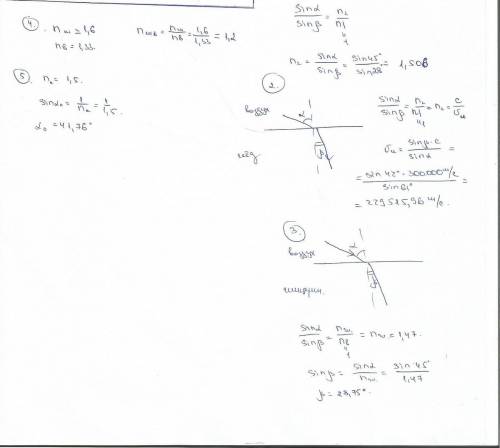 4.
n ш = 1,6
n в = 1,33
n шв = nш/nв = 1,6/1,33 = 1,2
5.
n = 1,5.
sin α₀ = 1/n = 1/1,5.
α₀ = 41,76°
sinα/sinβ = n₂/n₁
1
n₂ = sinα/sinβ = sin45°/sin28° = 1,506
2.
воздух
α
β
лёд
sinα/sinβ = n₂/n₁ = n₂ = c/υ
1
υ = sinβ·c/sinα =
= sin 42° · 300000 /c / sin61° =
= 229525,96 /c.
3.
воздух
α
β
глицерин
sinα/sinβ = n/n = n = 1,47.
1
sinβ = sinα/n = sin 45°/1,47
β = 28,75°.